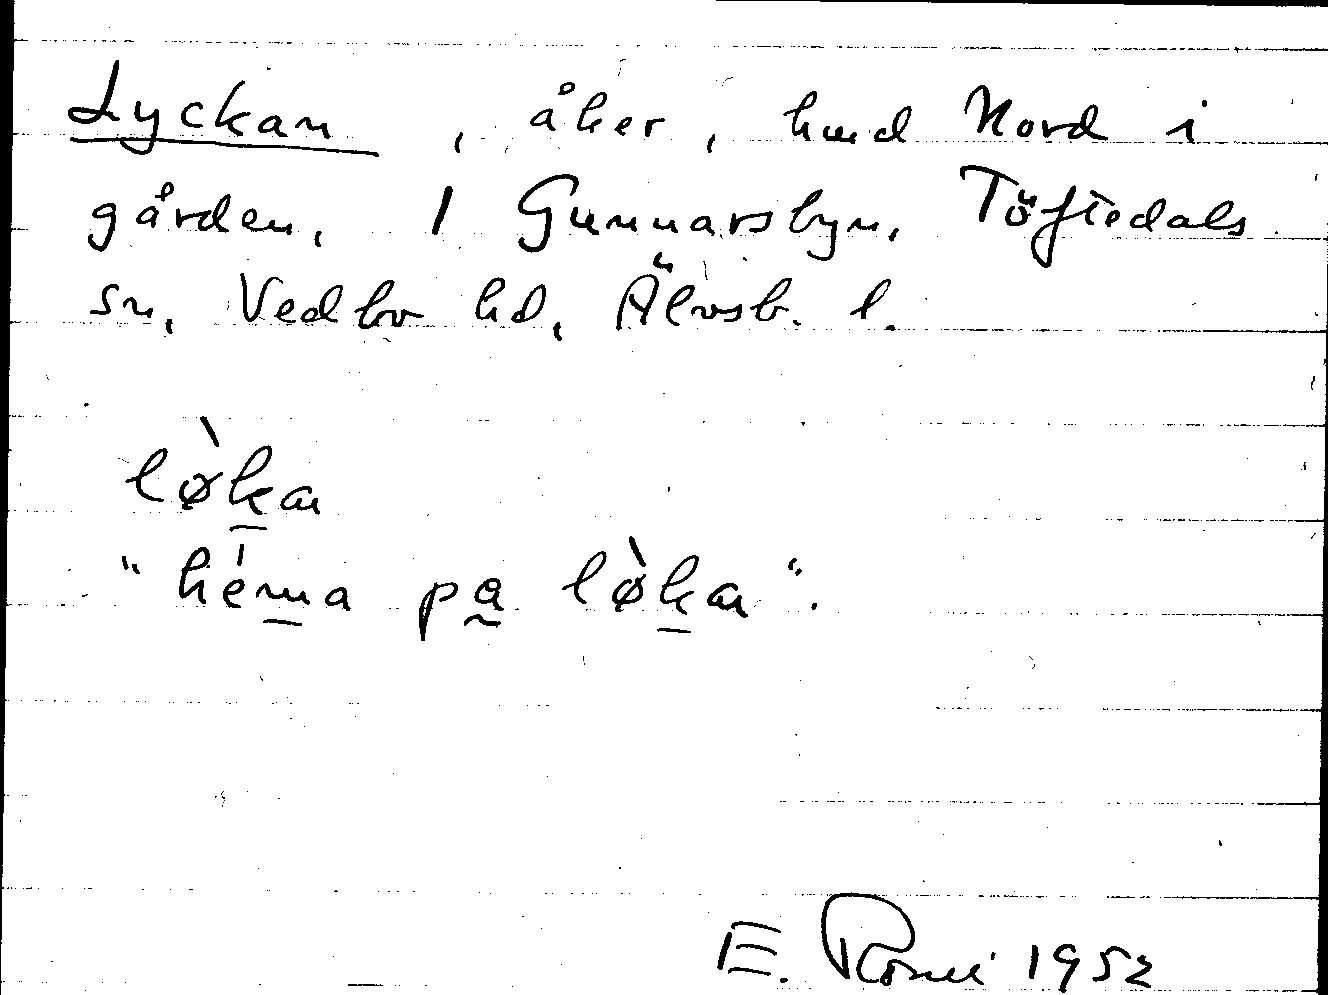 Lyckan, åker, hmd Nord i
gården, 1 Gunnarsbyn, Töftedals
sn, Vedbo hd, Älvsb. l.
lø̀ḵa
"héma på lø̀ḵa".
E. 1952